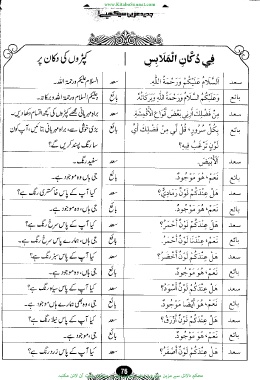 www.KitaboSunnat.com
جدید عربی سیکھیے
فِي دُكَّانِ الْمَلَابِسِ
کپڑوں کی دکان پر
سعد اَلسَّلَامُ عَلَيْكُمْ وَرَحْمَةُ اللّٰهِ. سعد السلام علیکم ورحمۃ اللہ۔
بائع وَعَلَيْكُمُ السَّلَامُ وَرَحْمَةُ اللّٰهِ وَبَرَكَاتُهُ بائع وعلیکم السلام ورحمۃ اللہ وبرکاتہ۔
سعد مِنْ فَضْلِكَ أَرِنِي بَعْضَ أَنْوَاعِ الْأَقْمِشَةِ سعد براہ مہربانی مجھے کپڑوں کی کچھ اقسام دکھائیں۔
بائع بِكُلِّ سُرُورٍ، قُلْ لِي مِنْ فَضْلِكَ أَيَّ بائع بڑی خوشی سے، براہ مہربانی بتائیں، آپ کون
لَوْنٍ تَرْغَبُ فِيهِ؟ سا رنگ پسند کریں گے؟
سعد اَلْأَبْيَضَ. سعد سفید رنگ۔
بائع نَعَمْ، هُوَ مَوْجُودٌ. بائع جی ہاں، وہ موجود ہے۔
سعد هَلْ عِنْدَكُمْ لَوْنٌ رَمَادِيٌّ؟ سعد کیا آپ کے پاس خاکستری رنگ ہے؟
بائع نَعَمْ، هُوَ مَوْجُودٌ. بائع جی ہاں، وہ موجود ہے۔
سعد هَلْ عِنْدَكُمْ لَوْنٌ أَحْمَرُ؟ سعد کیا آپ کے پاس سرخ رنگ ہے؟
بائع نَعَمْ، عِنْدَنَا لَوْنٌ أَحْمَرُ. بائع جی ہاں، ہمارے پاس سرخ رنگ ہے۔
سعد هَلْ عِنْدَكُمْ لَوْنٌ أَخْضَرُ؟ سعد کیا آپ کے پاس سبز رنگ ہے؟
بائع نَعَمْ، هُوَ مَوْجُودٌ. بائع جی ہاں، وہ موجود ہے۔
سعد هَلْ عِنْدَكُمْ لَوْنٌ أَسْوَدُ؟ سعد کیا آپ کے پاس سیاہ رنگ ہے؟
بائع نَعَمْ، هُوَ أَيْضًا مَوْجُودٌ. بائع جی، وہ بھی ہمارے ہاں موجود ہے۔
سعد هَلْ عِنْدَكُمْ لَوْنٌ أَزْرَقُ؟ سعد کیا آپ کے پاس نیلا رنگ ہے؟
بائع نَعَمْ، هُوَ مَوْجُودٌ. بائع جی، وہ موجود ہے۔
سعد هَلْ عِنْدَكُمْ لَوْنٌ أَصْفَرُ؟ سعد کیا آپ کے پاس زرد رنگ ہے؟
76